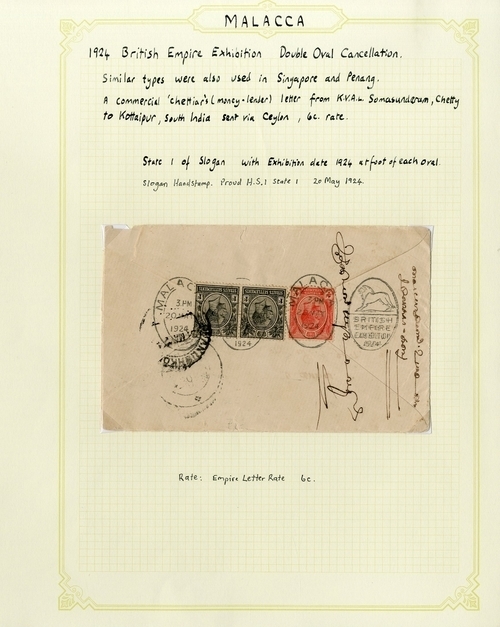 MALACCA
1924 British Empire Exhibition Double Oval Cancellation.
Similar types were also used in Singapore and Penang.
A commercial 'chettiar's (money-lender) letter from K.V.A.L. Somasunderum, Chetty
to Kottaipur, South India sent via Ceylon, 6c. rate.
State 1 of Slogan with Exhibition date 1924 at foot of each oval.
Slogan Handstamp. Proud H.S.1 State 1 20 May 1924.
MALAC
3 PM
20
1924
1924
MALAC
BRITISH
EMPIRE
EXHIBITION
1924
Rate: Empire Letter Rate 6c.